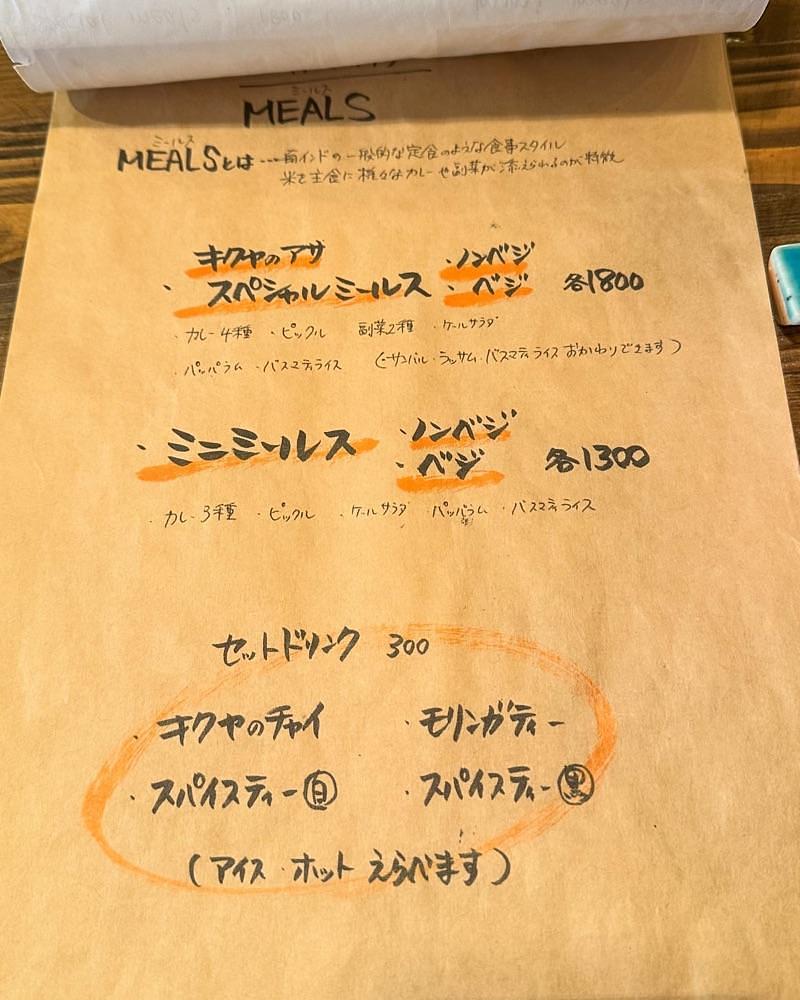 ミールス
MEALS
ミールス
MEALSとは…南インドの一般的な定食のような食事スタイル
米を主食に様々なカレーや副菜が添えられるのが特徴
キクヤのアサ ・ノンベジ
・スペシャルミールス ・ベジ 各1800
・カレー4種 ・ピックル 副菜2種 ・ケールサラダ
・パッパラム ・バスマティライス (・サンバル・ラッサム・バスマティライスおかわりできます)
・ミニミールス ・ノンベジ
・ベジ 各1300
・カレー3種 ・ピックル ・ケールサラダ ・パッパラム ・バスマティライス
セットドリンク 300
・キクヤのチャイ ・モリンガティー
・スパイスティー白 ・スパイスティー黒
(アイス・ホット えらべます)